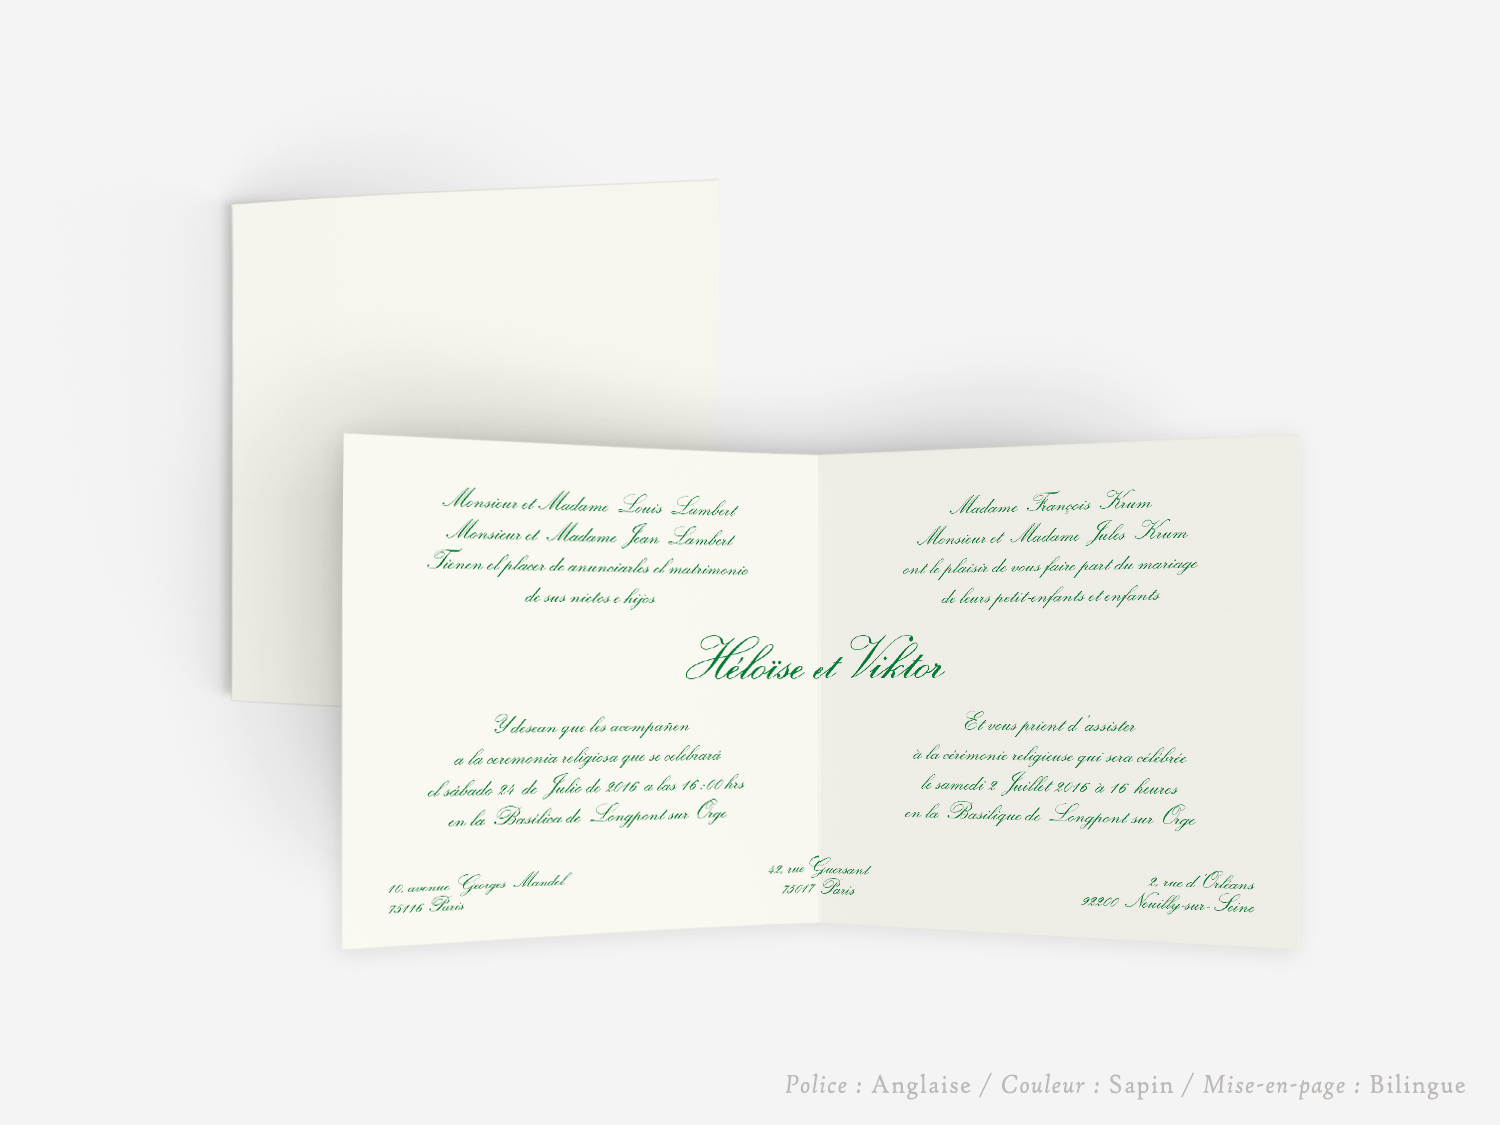 Monsieur et Madame Louis Lambert
Monsieur et Madame Jean Lambert
Tienen el placer de anunciarles el matrimonio
de sus nietos e hijos
Madame François Krum
Monsieur et Madame Jules Krum
ont le plaisir de vous faire part du mariage
de leurs petit-enfants et enfants
Héloïse et Viktor
Y desean que les acompañen
a la ceremonia religiosa que se celebrará
el sábado 24 de Julio de 2016 a las 16:00 hrs
en la Basilica de Longpont sur Orge
Et vous prient d'assister
à la cérémonie religieuse qui sera célébrée
le samedi 2 Juillet 2016 à 16 heures
en la Basilique de Longpont sur Orge
10, avenue Georges Mandel
75116 Paris
42, rue Guersant
75017 Paris
2, rue d'Orléans
92200 Neuilly-sur-Seine
Police : Anglaise / Couleur : Sapin / Mise-en-page : Bilingue